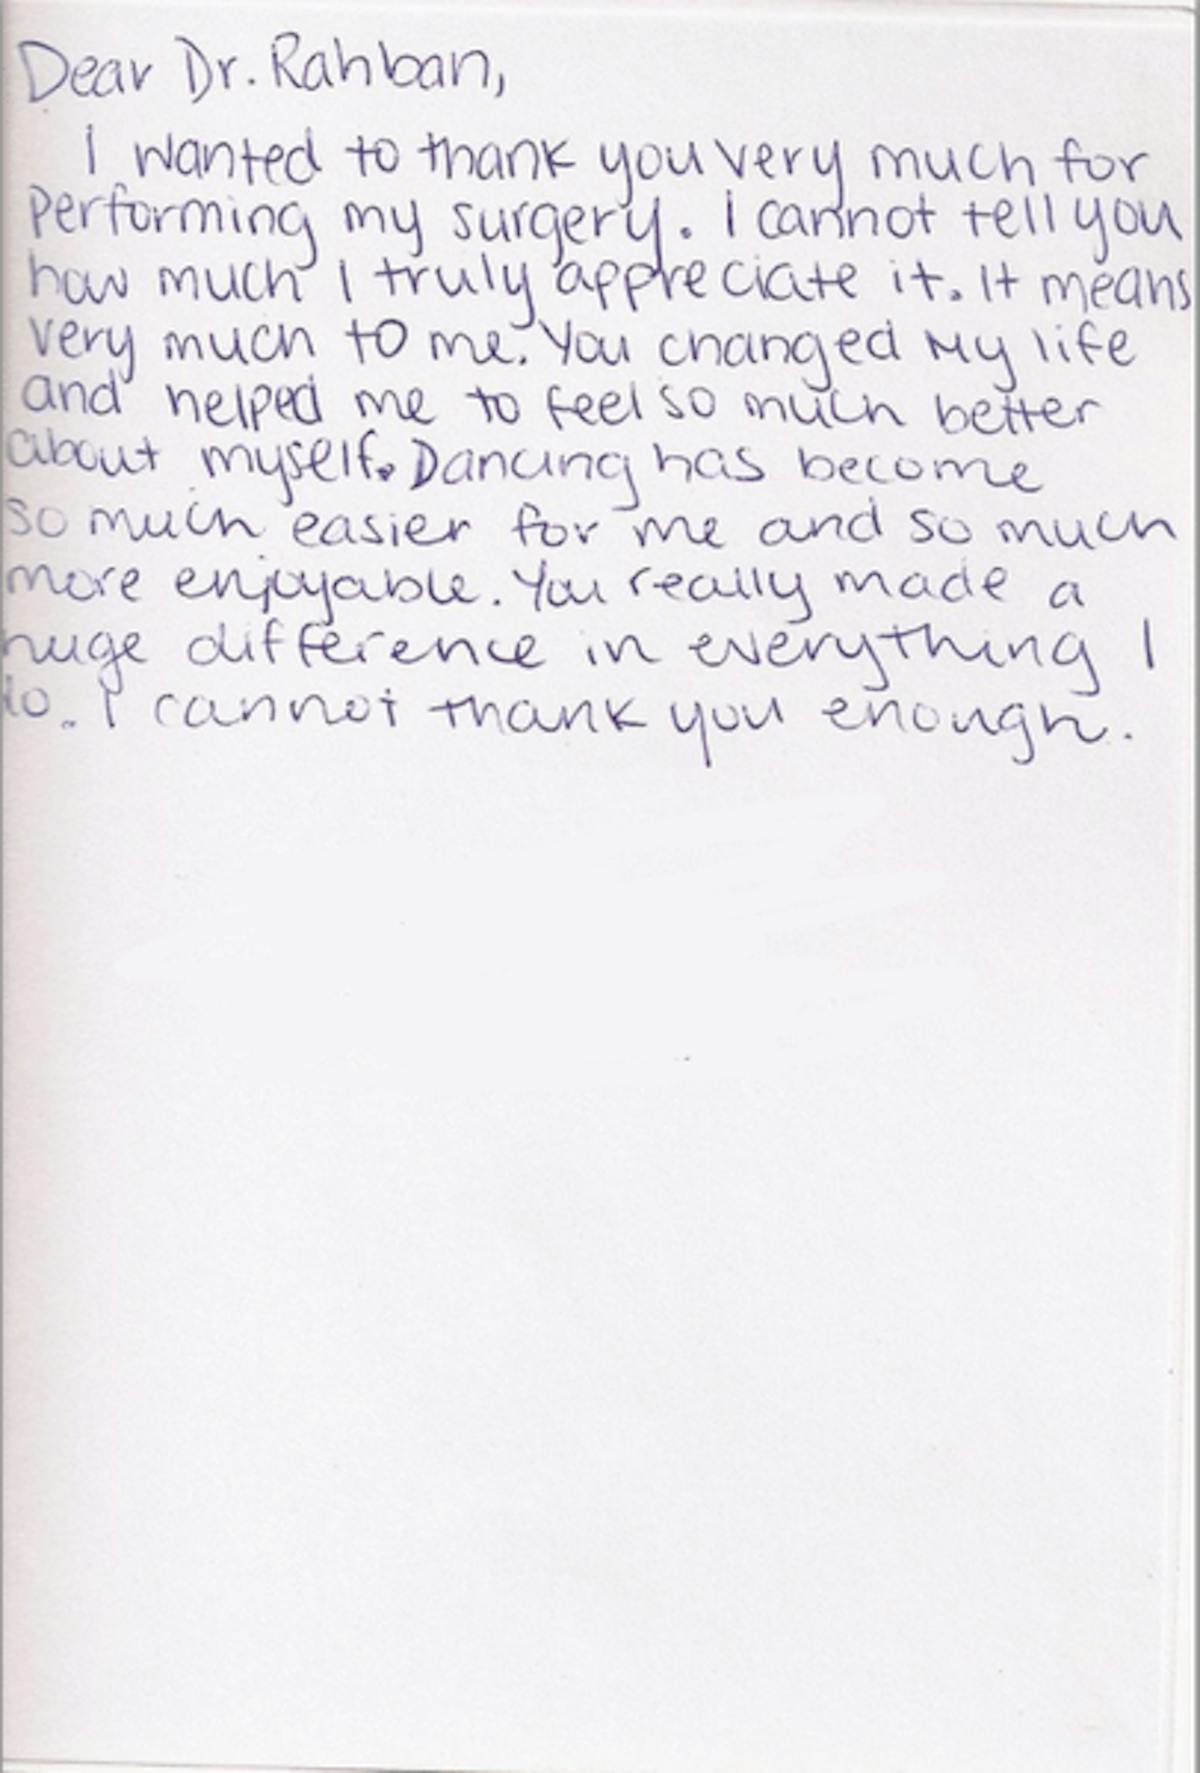 Dear Dr. Rahban,
I wanted to thank you very much for
performing my surgery. I cannot tell you
how much I truly appreciate it. It means
very much to me. You changed my life
and helped me to feel so much better
about myself. Dancing has become
so much easier for me and so much
more enjoyable. You really made a
huge difference in everything I
do. I cannot thank you enough.